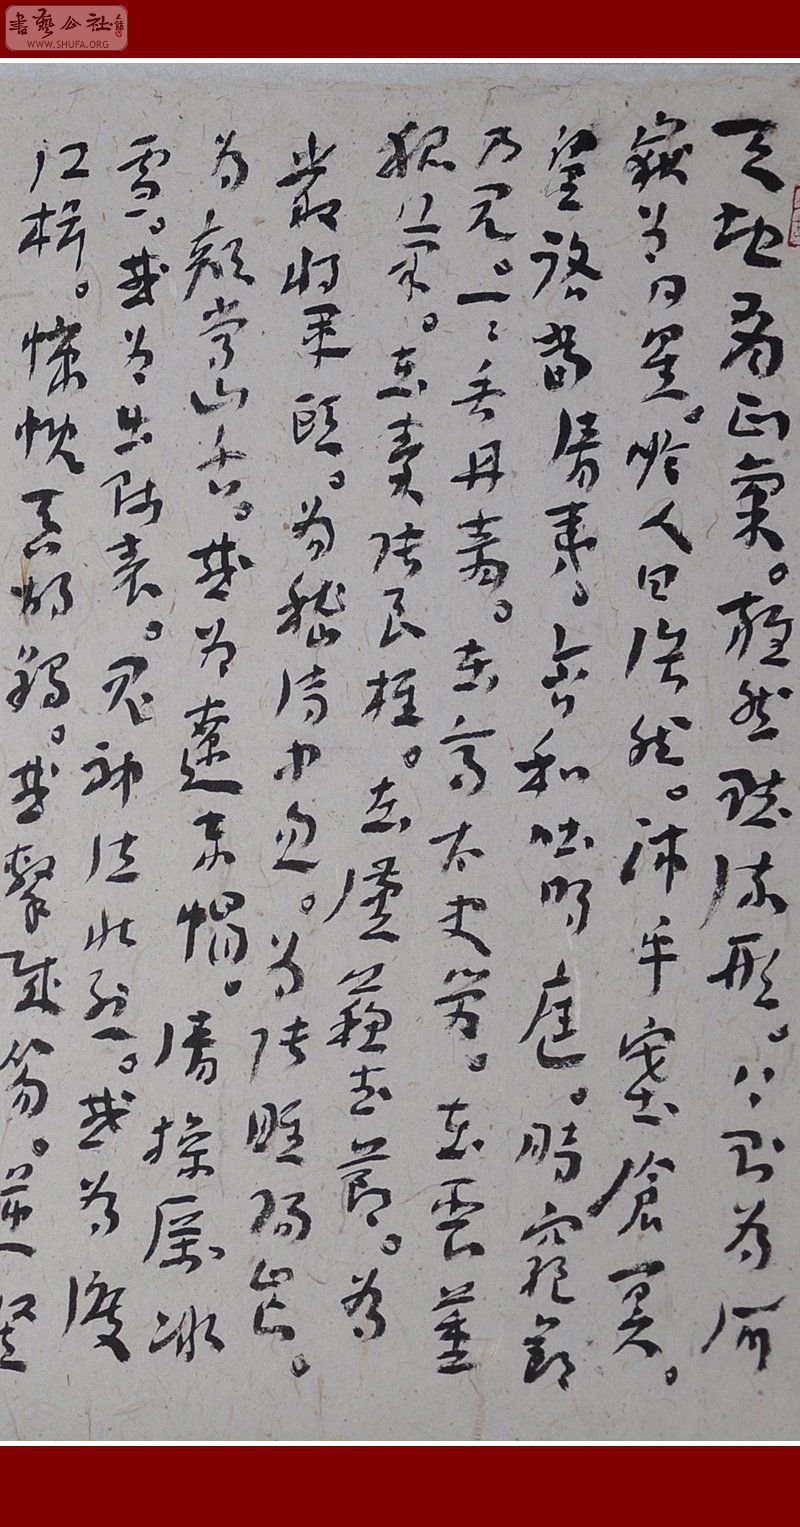 書藝公社
WWW.SHUFA.ORG
天地有正氣。雜然賦流形。下則為河
嶽為日星。於人曰浩然。沛乎塞倉冥。
皇路當清夷。含和吐明庭。時窮節
乃見。一一垂丹青。在齊太史簡。在晉董
狐筆。在秦張良椎。在漢蘇武節。為
嚴將軍頭。為嵇侍中血。為張睢陽齒。
為顏常山舌。或為遼東帽。清操厲冰
雪。或為出師表。鬼神泣壯烈。或為渡
江楫。慷慨吞胡羯。或擊賊笏。逆豎